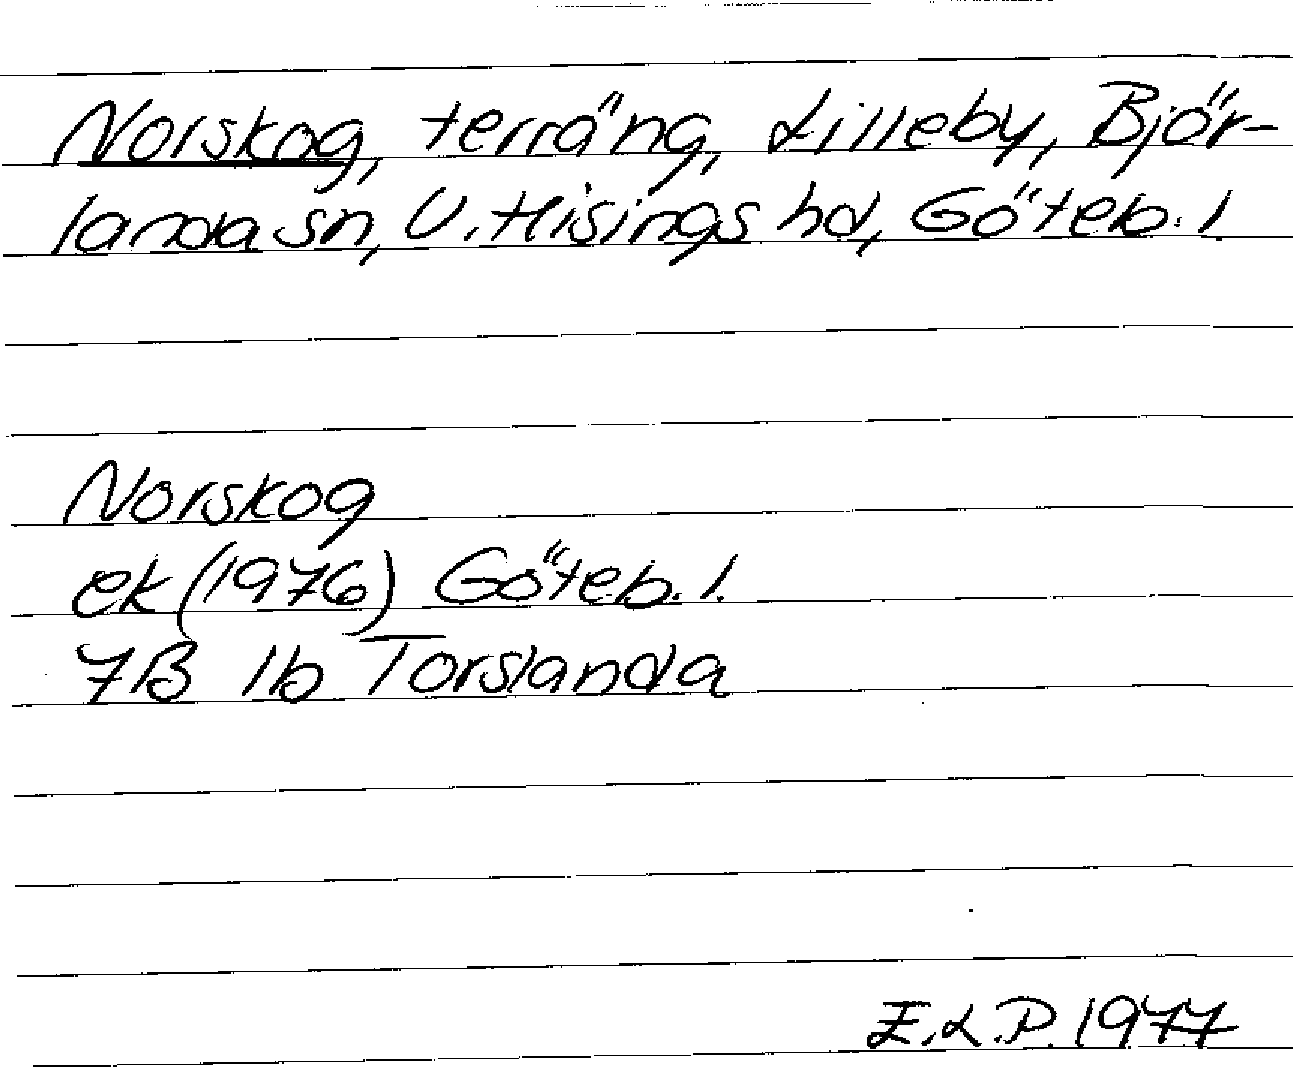 Norskog, terräng, Lilleby, Björ-
landa sn, V. Hisings hd, Göteb. l
Norskog
ek (1976) Göteb. l.
7B 1b Torslanda
E.L.P. 1977